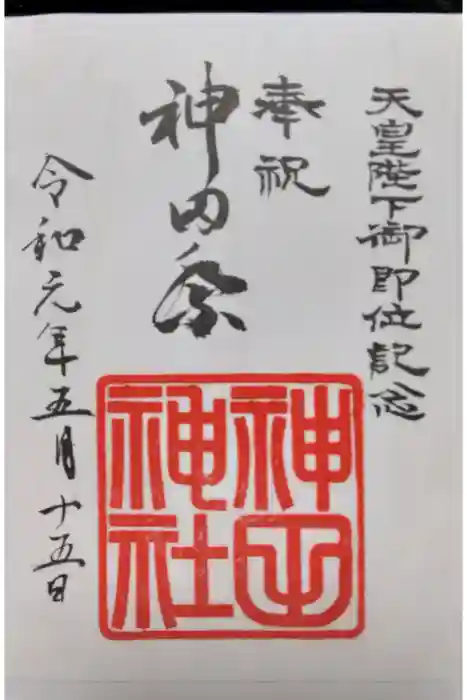 天皇陛下御即位記念
奉祝
神田祭
令和元年五月十五日
神田
神社